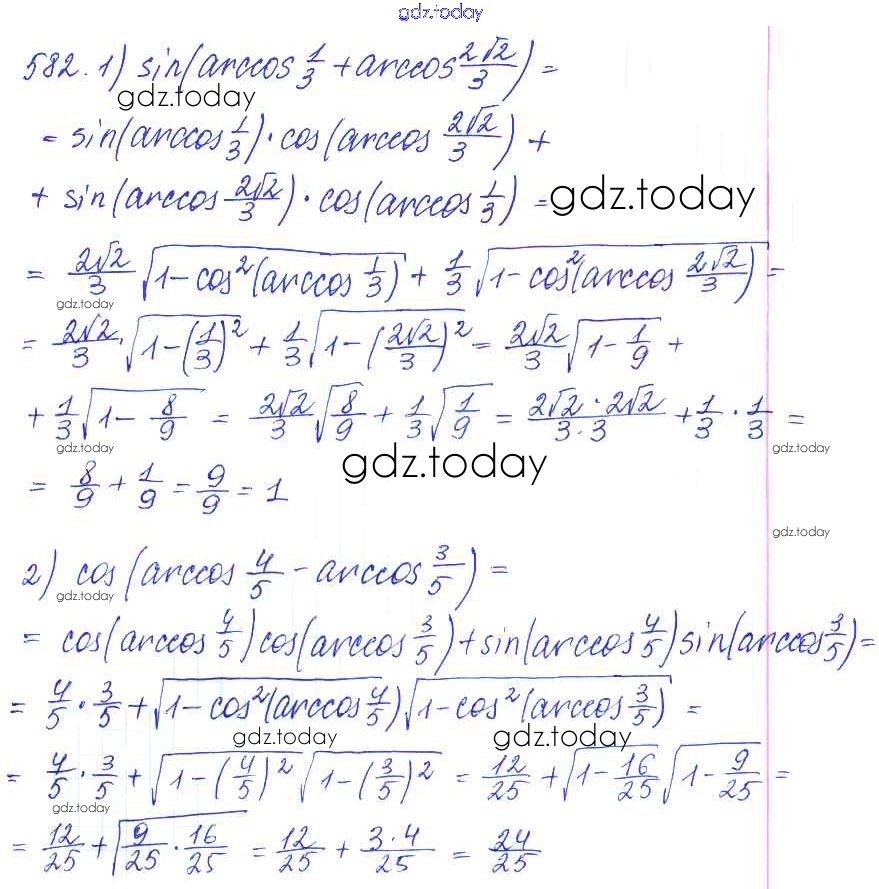 gdz.today
582. 1) sin(arccos 1/3 + arccos 2√2/3) =
gdz.today
= sin(arccos 1/3) · cos(arccos 2√2/3) +
+ sin(arccos 2√2/3) · cos(arccos 1/3) =
gdz.today
= 2√2/3 √(1-cos²(arccos 1/3)) + 1/3 √(1-cos²(arccos 2√2/3)) =
gdz.today
= 2√2/3 · √(1-(1/3)²) + 1/3 √(1-(2√2/3)²) = 2√2/3 √(1-1/9) +
+ 1/3 √(1-8/9) = 2√2/3 √(8/9) + 1/3 √(1/9) = 2√2·2√2/3·3 + 1/3 · 1/3 =
gdz.today
gdz.today
gdz.today
= 8/9 + 1/9 = 9/9 = 1
gdz.today
2) cos(arccos 4/5 - arccos 3/5) =
gdz.today
= cos(arccos 4/5)cos(arccos 3/5)+sin(arccos 4/5)sin(arccos 3/5)=
= 4/5 · 3/5 + √(1-cos²(arccos 4/5)) √(1-cos²(arccos 3/5)) =
gdz.today
gdz.today
= 4/5 · 3/5 + √(1-(4/5)²) √(1-(3/5)²) = 12/25 + √(1-16/25) √(1-9/25) =
gdz.today
= 12/25 + √(9/25 · 16/25) = 12/25 + 3·4/25 = 24/25